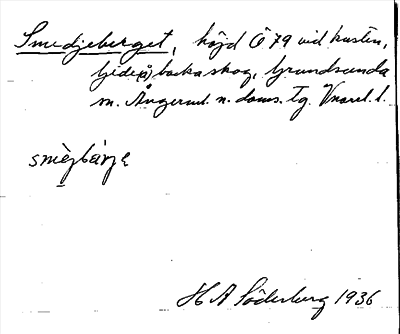 Smedjeberget, höjd Ö 79 vid kusten,
Gideå) backa skog, Grundsunda
sn. Ångerml. n. doms. Tg. Vnorrl. l.
smèjbárje
H A Söderberg 1936